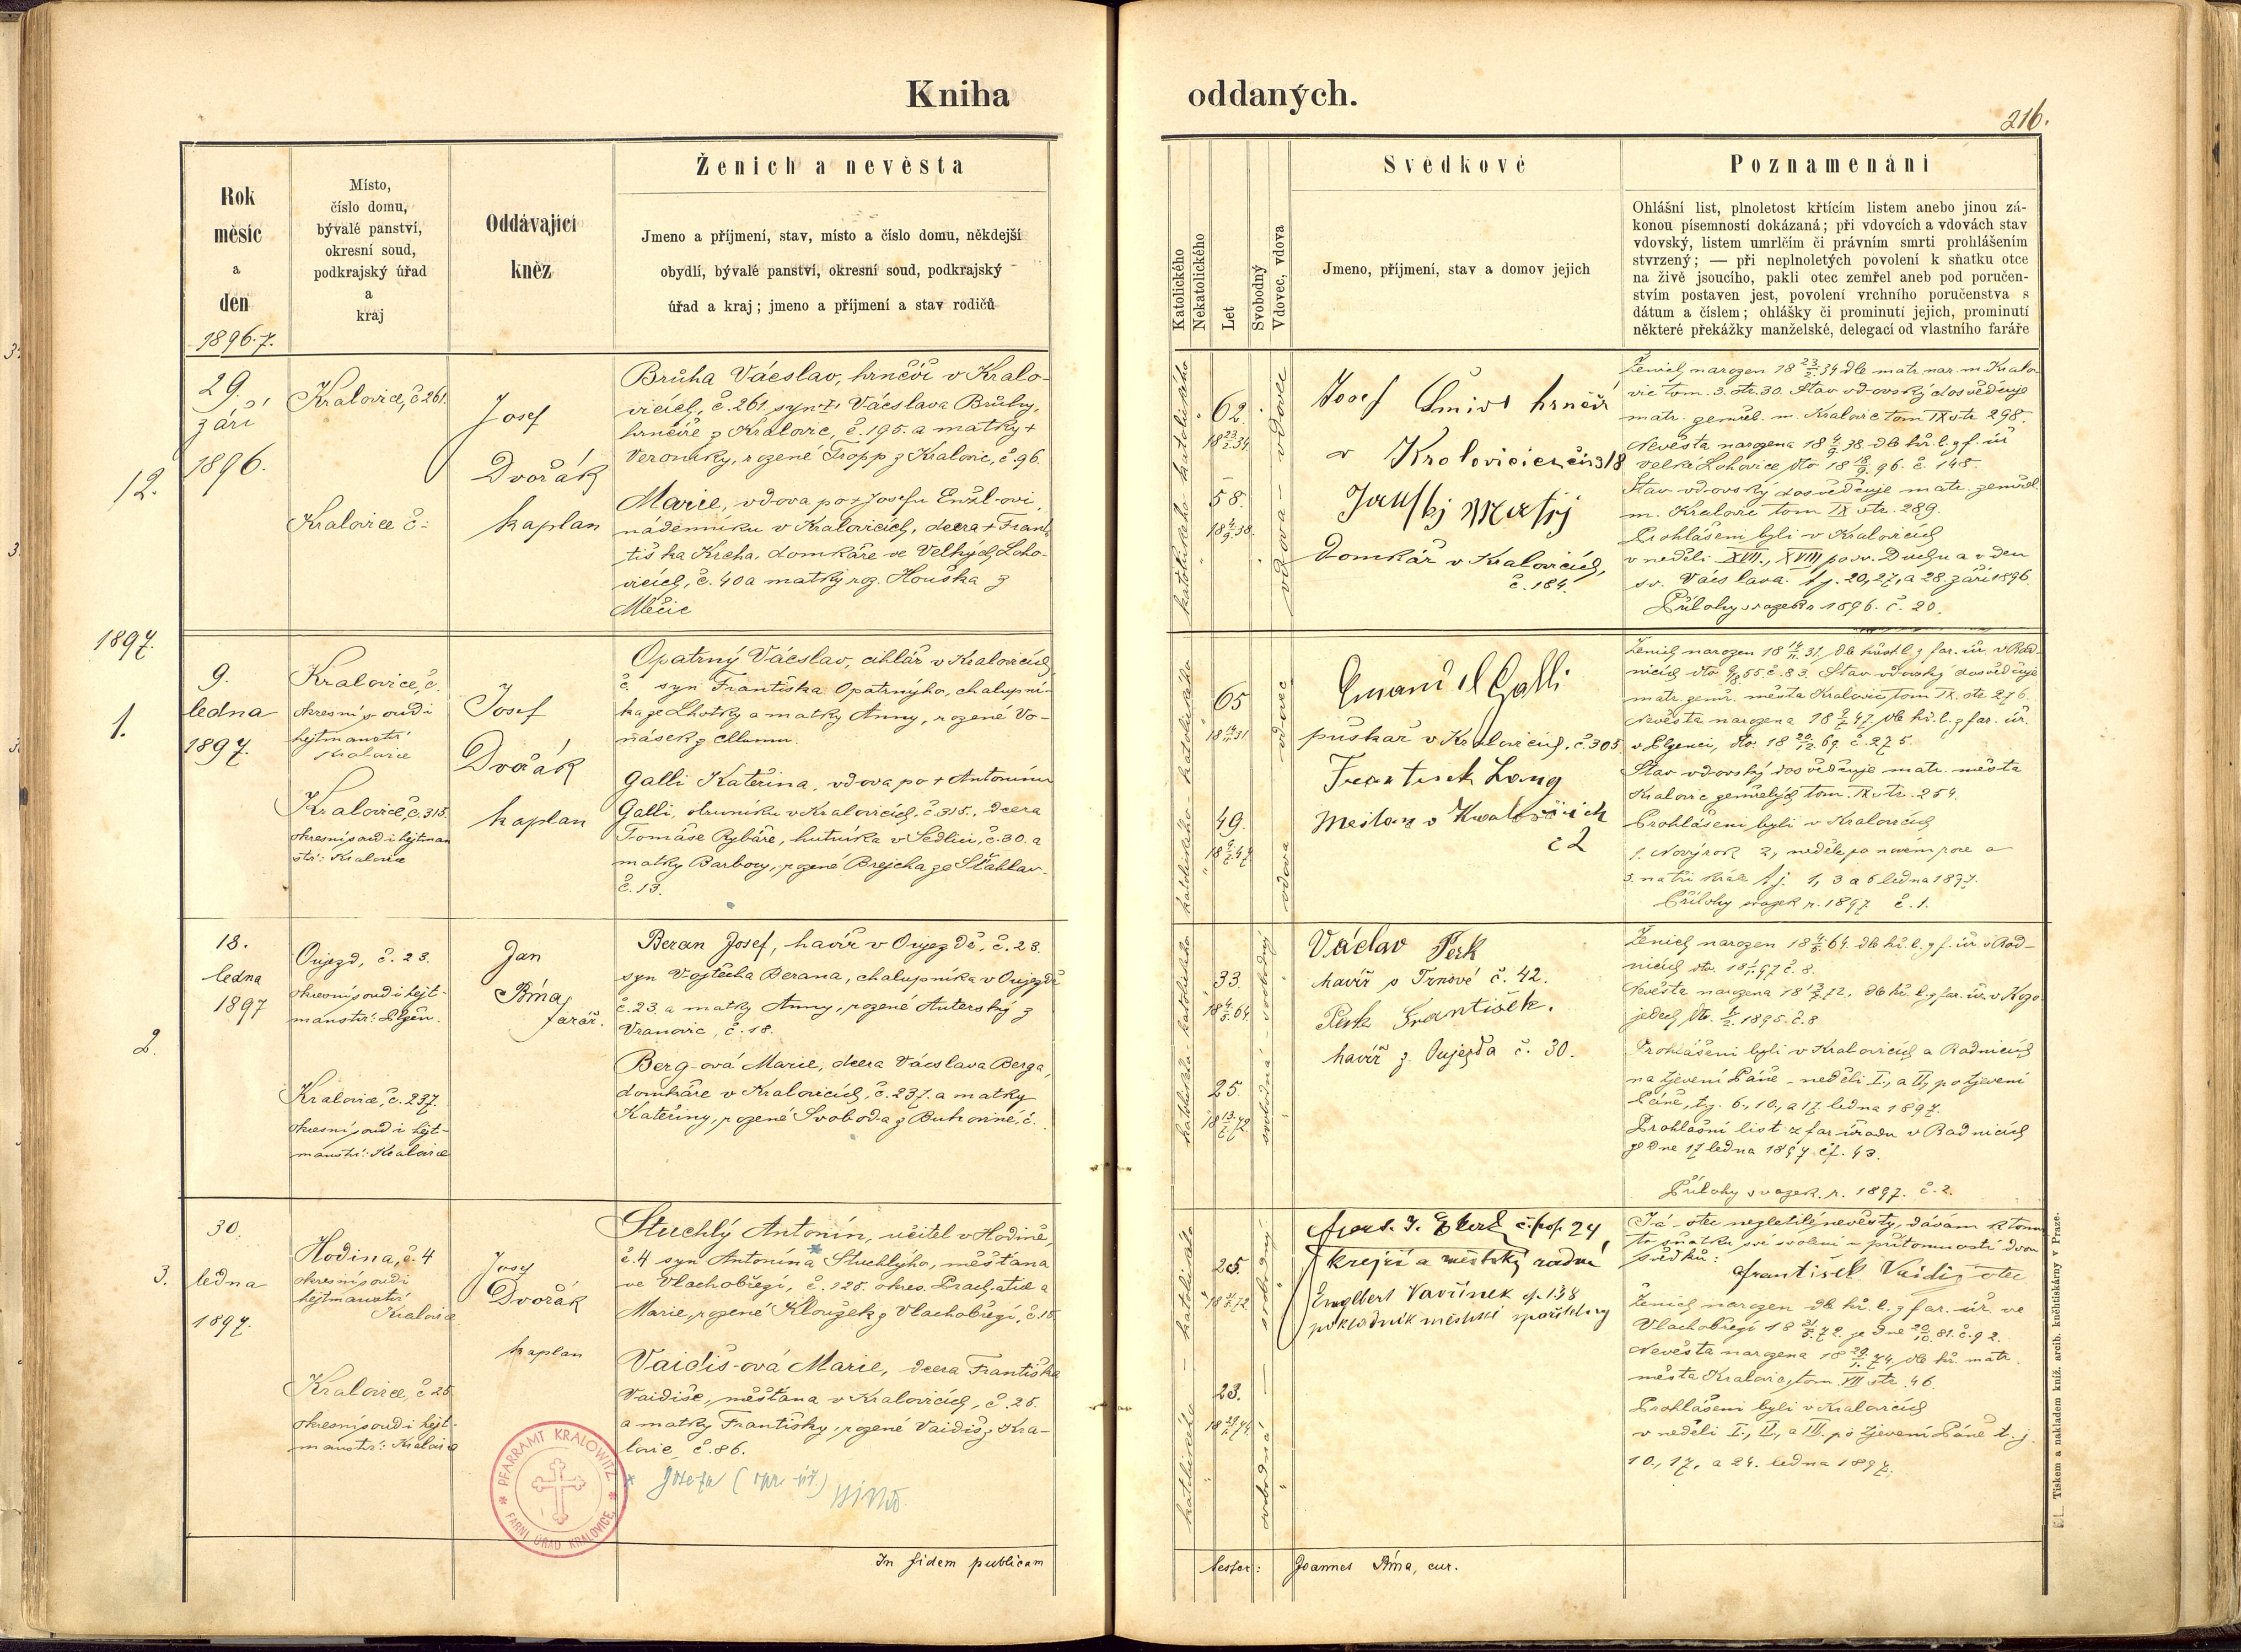 Kniha
oddaných.
216.
Rok
měsíc
a
den
1896-7.
Místo,
číslo domu,
bývalé panství,
okresní soud,
podkrajský úřad
a
kraj
Oddávající
kněz
Ženich a nevěsta
Jmeno a příjmení, stav, místo a číslo domu, někdejší
obydlí, bývalé panství, okresní soud, podkrajský
úřad a kraj; jmeno a příjmení a stav rodičů
Katolického
Nekatolického
Let
Svobodný
Vdovec, vdova
Svědkové
Jmeno, příjmení, stav a domov jejich
Poznamenání
Ohlášní list, plnoletost křtícím listem anebo jinou zá-
konou písemností dokázaná; při vdovcích a vdovách stav
vdovský, listem umrlčím či právním smrti prohlášením
stvrzený; — při neplnoletých povolení k sňatku otce
na živě jsoucího, pakli otec zemřel aneb pod poručen-
stvím postaven jest, povolení vrchního poručenstva s
dátum a číslem; ohlášky či prominutí jejich, prominutí
některé překážky manželské, delegací od vlastního faráře
12.
29.
září
1896.
Kralovice, č 261.
Kralovice č:
Josef
Dvořák
kaplan
Brůha Vácslav, hrnčíř v Kralo-
vicích, č. 261, syn + Vácslava Brůhy,
hrnčíře z Kralovic, č. 195. a matky +
Veroniky, rozené Tropp z Kralovic, č. 96.
Marie, vdova po + Josefu Enžl-ovi,
nádenníku v Kralovicích, dcera + Fran-
tiška Krcha, domkáře ve Velkých Loho-
vicích, č. 40 a matky roz. Houška z
Mlečic
katolického katolického
62.
18 23/2 34.
58.
18 4/9 38.
vdova – vdovec
Josef Šmíd hrnčíř
v Kralovicích čís 318
Matěj
domkář v Kralovicích,
č. 184.
Ženich narozen 18 23/2 34 dle matr. nar. m. Kralo-
vic tom. 3. str. 30. Stav vdovský dosvědčuje
matr. zemřel. m. Kralovic tom IX str. 298.
Nevěsta narozena 18 4/9 38. dle kř. l. z f. úř.
Velké Lohovice dto 18 18/9 96. č. 148.
Stav vdovský dosvědčuje matr. zemřel.
m. Kralovic tom IX str. 289.
Prohlášeni byli v Kralovicích
v neděli XVII., XVIII po sv. Duchu a v den
sv. Vácslava. t.j. 20, 27, a 28. září 1896.
Přílohy svazek r 1896. č. 20.
1897.
1.
9.
ledna
1897.
Kralovice, č.
okresní soud i
hejtmanství
Kralovice
Kralovice, č. 315.
okresní soud i hejtman
ství: Kralovice
Josef
Dvořák
kaplan
Opatrný Vácslav, cihlář v Kralovicích
č. syn Františka Opatrnýho, chalupní-
ka ze Lhotky a matky Anny, rozené Vo-
násek z Chlumu.
Galli Kateřina, vdova po + Antonínu
Galli, v Kralovicích, č 315., dcera
Tomáše Rybáře, hutníka v Sedlci, č. 30. a
matky Barbory, rozené Brejcha ze Šťáhlav.
č. 13.
katolického katolického
65
18 14/11 31
49.
vdova vdovec
Emanuel Galli
puškař v Kralovicích, č. 305
František Lang
v Kralovicích
č 2
Ženich narozen 18 14/11 31, dle křest. l. z far. úř. v Rad-
nicích dto 9/8 55. č. 83. Stav vdovský dosvědčuje
matr. zemř. města Kralovic, tom IX. str. 276.
Nevěsta narozena dle kř. l. z far. úř.
v Plzenci, dto. 18 20/12 69. č. 275.
Stav vdovský dosvědčuje matr. města
Kralovic zemřelých tom. IX str. 254.
Prohlášeni byli v Kralovicích
1. Nový rok 2, neděle po novém roce a
3. na tři krále t.j. 1, 3 a 6 ledna 1897.
Přílohy svazek r. 1897 č. 1.
2.
18.
ledna
1897
Oujezd, č. 23.
okresní soud i hejt-
manství: Plzeň.
Kralovice, č. 237.
okresní soud i hejt-
manství: Kralovice
Jan
Bíma,
farář.
Beran Josef, havíř v Oujezdě, č. 23.
syn Vojtěcha Berana, chalupníka v Oujezdě
č. 23. a matky Anny, rozené Auterský z
Vranovic, č. 18.
Berg-ová Marie, dcera Vácslava Berga,
domkáře v Kralovicích, č. 237. a matky
Kateřiny, rozené Svoboda z Buhovine, č.
katolického katolického
33.
18 4/5 64.
25.
18 13/7 72.
svobodná – svobodný
Václav Perk
havíř v Trnové č. 42.
Perk František.
havíř z Oujezda č. 30.
Ženich narozen 18 4/5 64. dle kř. l. z f. úř. v Rad-
nicích dto. 18 97 č. 8.
Nevěsta narozena 18 13/7 72. dle kř. l. z far. úř. v Kozo-
jedech, dto. 1895. č. 8
Prohlášeni byli v Kralovicích a Radnicích
na zjevení Páně – neděli I., a II, po zjevení
Páně, t.j. 6., 10., a 17. ledna 1897.
Prohlášní list z far. úřadu v Radnicích
ze dne 17 ledna 1897 čj. 43.
Přílohy svazek. r. 1897. č. 2.
3.
30.
ledna
1897.
Hodina, č. 4
okresní soud i
hejtmanství
Kralovice
Kralovice, č 25.
okresní soud i hejt-
manství: Kralovice
Josef
Dvořák
kaplan
Stuchlý Antonín, učitel v Hodině,
č. 4 syn Antonína * Stuchlýho, měšťana
ve Vlachobřezí, č. 125. okres. Prachatice a
Marie, rozené Kloužek z Vlachobřezí, č. 18.
Vaidiš-ová Marie, dcera Františka
Vaidiše, měšťana v Kralovicích, č. 25.
a matky Františky, rozené Vaidiš z Kra-
lovic, č. 86.
* Josefa
PFARRAMT KRALOWITZ
FARNÍ ÚŘAD KRALOVICE
katolického – katolického
25.
23.
svobodná – svobodný
č. pop. 24,
krejčí a městský radní
Englbert Vavřínek čp. 138
pokladník městské spořitelny
Já – otec nezletilé nevěsty, dávám k tomu
to sňatku své svolení v přítomnosti dvou
svědků:
František Vaidiš otec
Ženich narozen dle kř. l. z far. úř. ve
Vlachobřezí
Nevěsta narozena dle kř. matr.
města Kralovic, tom. VII str. 46.
Prohlášeni byli v Kralovicích
v neděli I., II., a III. po zjevení Páně t. j.
10., 17., a 24. ledna 1897.
In fidem publicam
testor: Joannes Bíma, cur.
Tiskem a nakladem kníž. arcib. knihtiskárny v Praze.